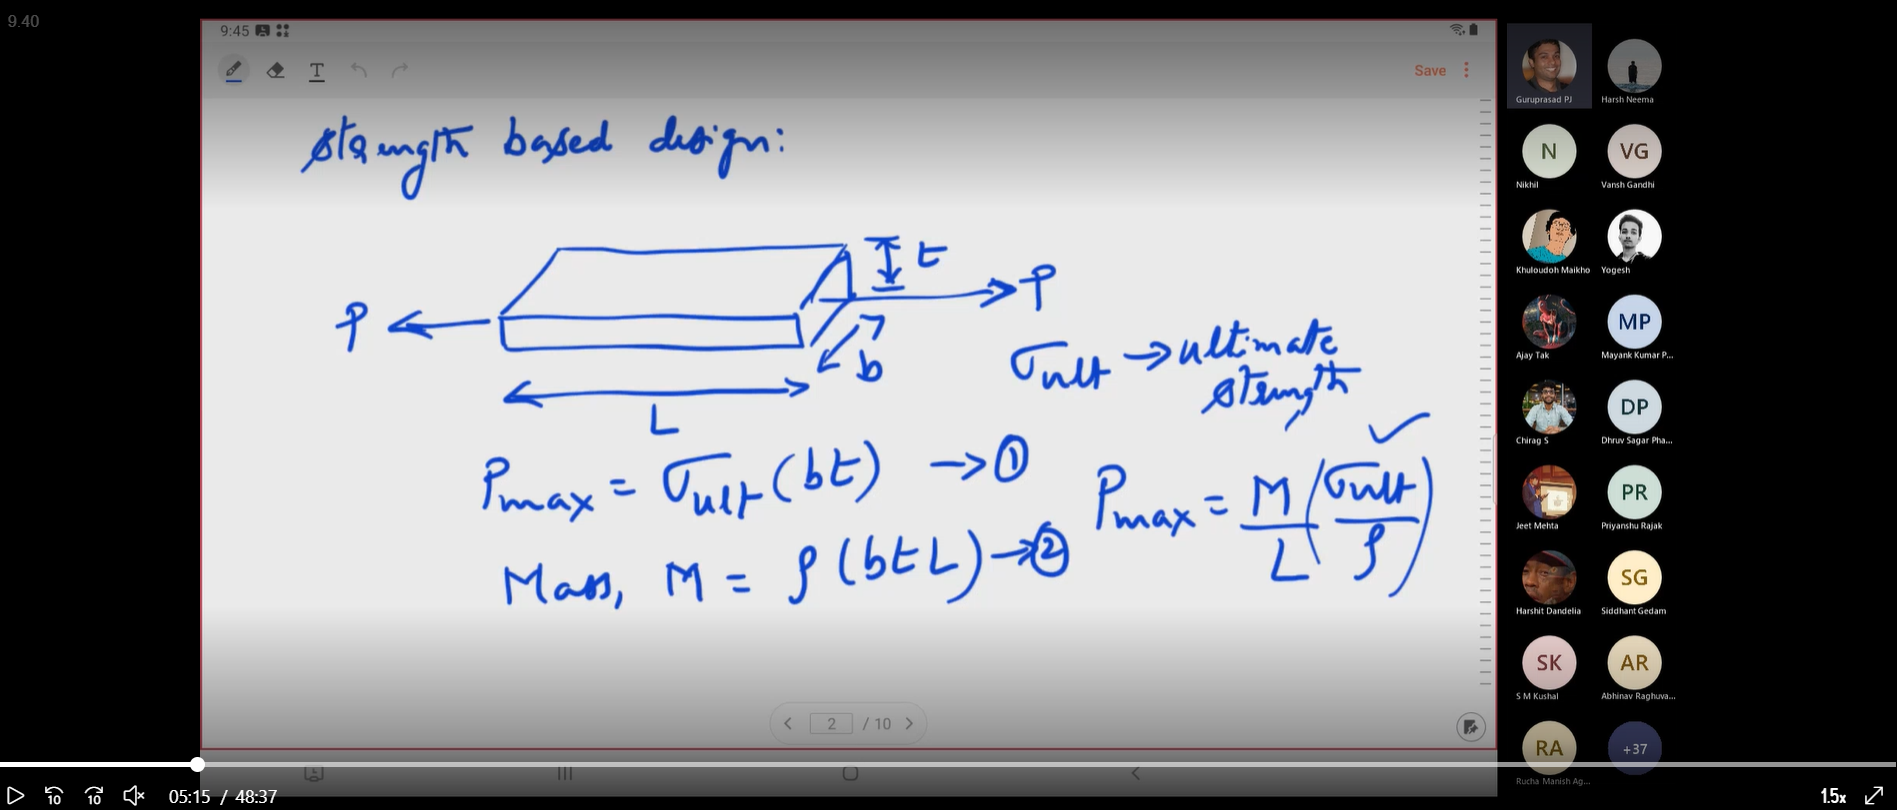 9.40
9:45
T
Save
Strength based design:
t
P
P
b
L
σult → ultimate
strength
Pmax = σult (bt) → ①
Pmax = M/L (σult/ρ) ✓
Mass, M = ρ (btL) → ②
2 / 10
Guruprasad PJ
Harsh Neema
N
VG
Nikhil
Vansh Gandhi
Khuloudoh Maikho
Yogesh
MP
Ajay Tak
Mayank Kumar P...
DP
Chirag S
Dhruv Sagar Pha...
PR
Jeet Mehta
Priyanshu Rajak
SG
Harshit Dandelia
Siddhant Gedam
SK
AR
S M Kushal
Abhinav Raghuva...
RA
+37
Rucha Manish Ag...
10
10
05:15 / 48:37
1.5x